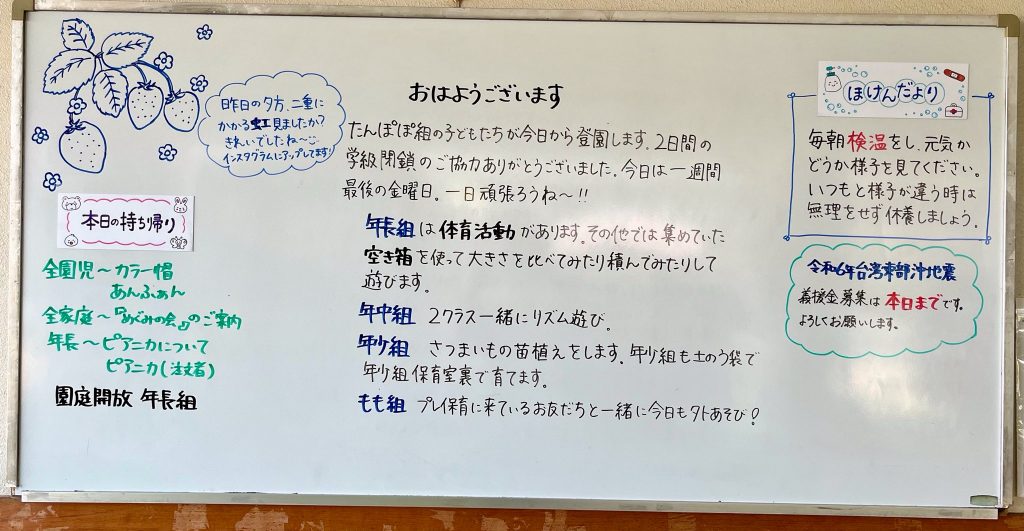 昨日の夕方、二重に
かかる虹見ましたか?
きれいでしたね〜
インスタグラムにアップしてます!
本日の持ち帰り
全園児〜カラー帽
あんふぁん
全家庭〜『めぐみの会』のご案内
年長〜ピアニカについて
ピアニカ(注文者)
園庭開放 年長組
おはようございます
たんぽぽ組の子どもたちが今日から登園します。2日間の
学級閉鎖のご協力ありがとうございました。今日は一週間
最後の金曜日。一日頑張ろうね〜!!
年長組は体育活動があります。その他では集めていた
空き箱を使って大きさを比べてみたり積んでみたりして
遊びます。
年中組 2クラス一緒にリズム遊び。
年少組 さつまいもの苗植えをします。年少組も土のう袋で
年少組保育室裏で育てます。
もも組 プレイ保育に来ているお友だちと一緒に今日も外あそび!
ほけんだより
毎朝検温をし、元気か
どうか様子を見てください。
いつもと様子が違う時は
無理をせず休養しましょう。
令和6年台湾東部沖地震
義援金募集は本日までです。
よろしくお願いします。